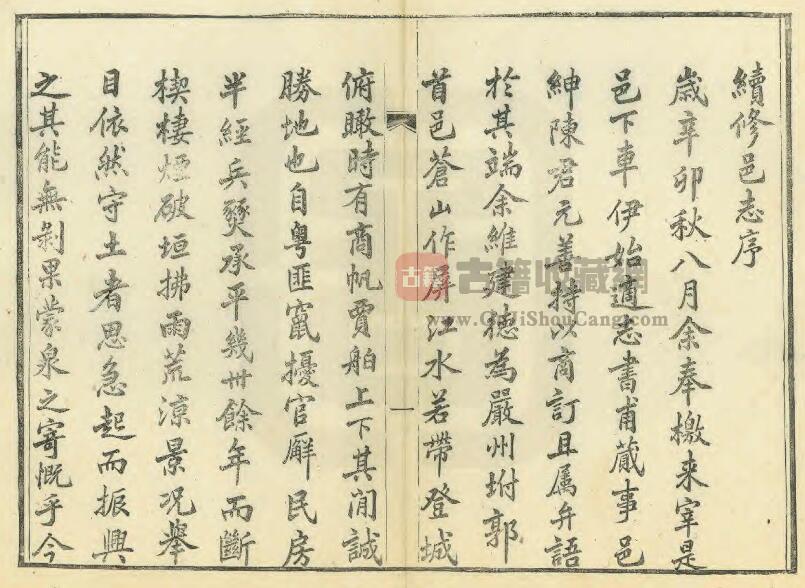 續修邑志序
歲辛卯秋八月余奉檄来宰是
邑下車伊始適志書甫蕆事邑
紳陳君元善持以商訂且属弁語
於其端余維建德為嚴州坿郭
首邑蒼山作屏江水若帶登城
一
俯瞰時有商帆賈舶上下其間誠
勝地也自粤匪竄擾官廨民房
半經兵燹承平幾卅餘年而斷
楔棲煙破垣拂雨荒涼景况舉
目依然守土者思急起而振興
之其能無剝果蒙泉之寄慨乎今
古籍
古籍收藏網
www.GuJiShouCang.com